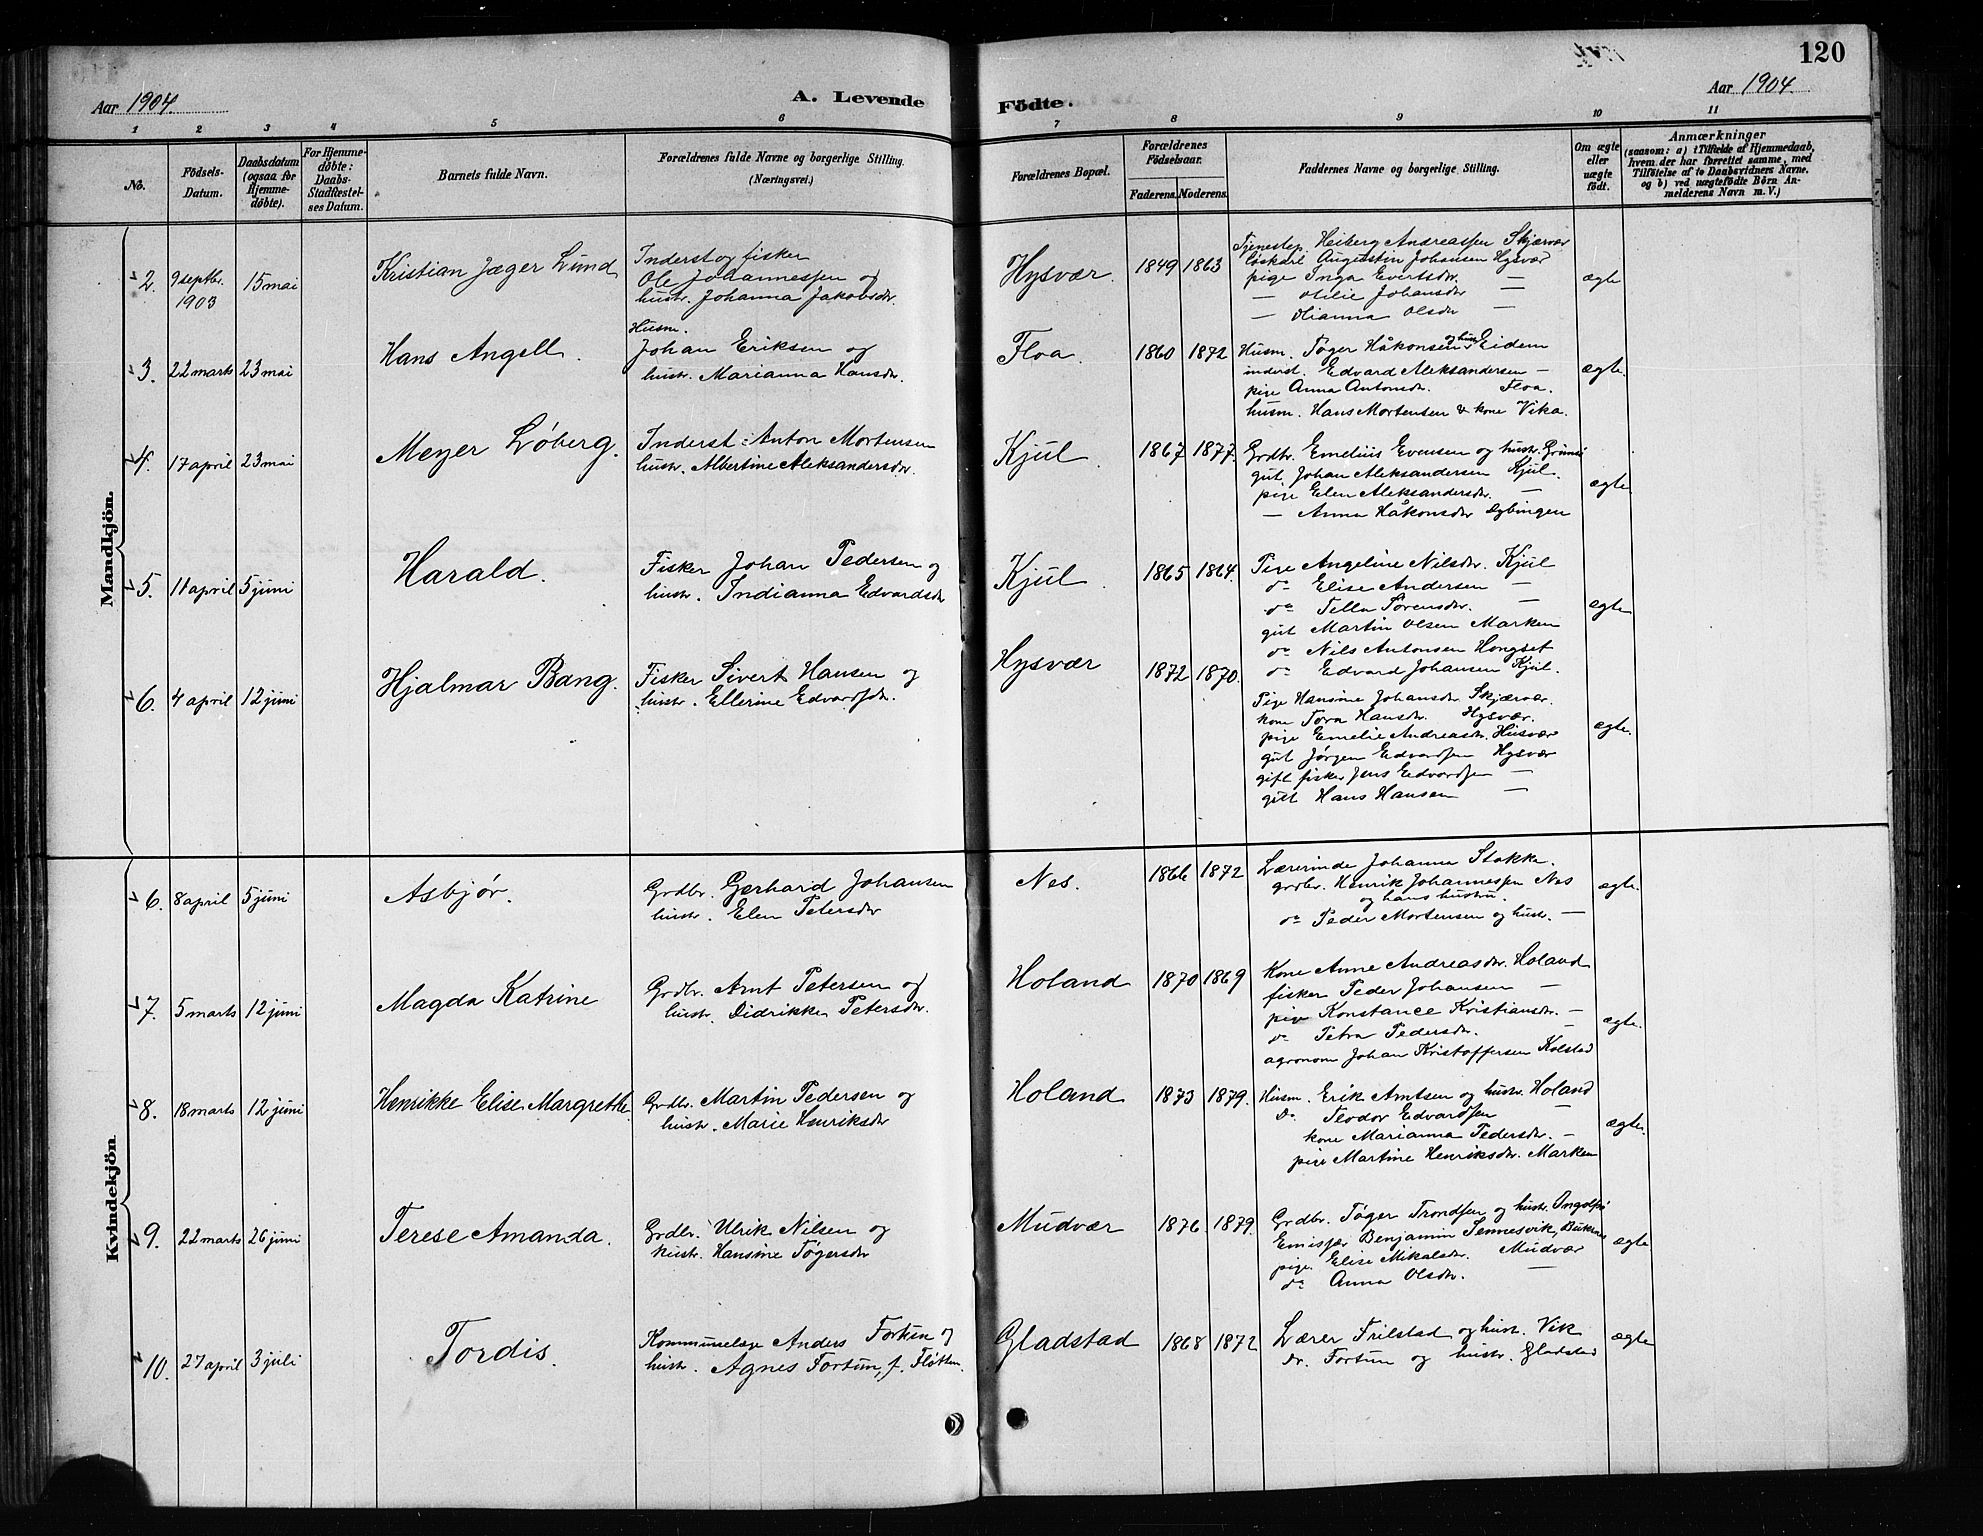 120
Aar 1904.
A. Levende Födte.
Aar 1904.
1 2 3 4 5 6 7 8 9 10 11
No.
Födsels-Datum.
Daabsdatum (ogsaa for Hjemme-döbte).
For Hjemme-döbte: Daabs-Stadfæstel-ses Datum.
Barnets fulde Navn.
Forældrenes fulde Navne og borgerlige Stilling. (Næringsvei.)
Forældrenes Bopæl.
Forældrenes Födselsaar.
Faderens. Moderens.
Faddernes Navne og borgerlige Stilling.
Om ægte eller uægte födt.
Anmærkninger
(saasom: a) i Tilfælde af Hjemmedaab,
hvem der har forrettet samme, med
Tilföielse af to Daabsvidners Navne,
og b) ved uægtefödte Börn An-
melderens Navn m. V.)
Mandkjön.
2. 9 septbr. 1903 15 mai Kristian Jæger Lund
Inderst og fisker
Ole Johannessen og
hustr. Johanna Jakobsdr.
Hysvær 1849 1863
Tjenestep. Heiberg Andreassen Skjærvær
løskarl Augustin Johansen Hysvær
pige Inga Evertsdr —
— Otilie Johansdr —
— Olsdr —
ægte
3. 22 marts 23 mai Hans Angell.
Husm.
Johan Eriksen og
hustr. Marianna Hansdr.
Floa. 1860 1872
Husm. Tøger Håkonsen og hust. Eidem
inderst. Edvard Aleksandersen —
pige Anna Antonsdr. Floa.
husm. Hans Mortensen & kone Vika.
ægte.
4. 17 april 23 mai Meyer Løberg.
Inderst Anton Mortensen
hustr. Albertine Aleksandersdr.
Kjul. 1867 1877.
Grdbr. Emelius Evensen og hustr.
gut Johan Aleksandersen Kjul.
pige Elen Aleksandersdr. —
— Anna Håkonsdr Dybingen
ægte.
5. 11 april 5 juni Harald.
Fisker Johan Pedersen og
hustr. Indianna Edvardsdr
Kjul. 1865 1864.
Pige Angeline Nilsdr. Kjul
do Elise Andersen —
do Tella Sørensdr. —
gut Martin Olsen Marken
do Nils Antonsen Hongset
do Edvard Johansen Kjul.
ægte
6. 4 april 12 juni Hjalmar Bang.
Fisker Sivert Hansen og
hustr. Ellerine Edvardsdr.
Hysvær 1872 1870.
Pige Hansine Johansdr Skjærvær.
kone Tora Hansdr. Hysvær.
pige Emelie Andreasdr. Husvær
gut Jørgen Edvardsen Hysvær
gift fisker Jens Edvardsen —
gut Hans Hansen —
ægte.
Kvindekjön.
6. 8 april 5 juni Asbjør.
Grdbr. Gerhard Johansen
hustr. Elen Petersdr
Nes. 1866 1872
Lærerinde Johanna Stokke.
grdbr. Henrik Johannessen Nes
og hans hustru.
do Peder Mortensen og hustr. —
ægte.
7. 5 marts 12 juni Magda Katrine
Grdbr. Arnt Petersen og
hustr. Didrikke Petersdr.
Holand 1870 1869
Kone Anne Andreasdr. Holand
fisker Peder Johansen —
pige Konstance Kristiansdr. —
do Petra Pedersdr. —
agronom Johan Kristoffersen Kolstad
ægte.
8. 18 marts 12 juni Henrikke Elise Margrethe
Grdbr. Martin Pedersen og
hustr. Marie Henriksdr
Holand 1873 1879.
Husm. Erik Arntsen og hustr. Holand
Do Teodor Edvardsen —
kone Marianna Pedersdr. —
pige Martine Henriksdr. Marken
ægte.
9. 22 marts 26 juni Terese Amanda.
Grdbr. Ulrik Nilsen og
hustr. Hansine Tøgersdr
Mudvær 1876 1879.
Grdbr. Tøger Trondsen og hustr.
Emisær Benjamin Sennesvik,
pige. Elise Mikalsdr. Mudvær
do Anna Olsdr. —
ægte
10. 27 april 3 juli Tordis.
Kommunelæge Anders Fortun og
hustr. Agnes Fortun, f. Fløttum.
Gladstad 1868 1872
Lærer Frilstad og hust. Vik
Dr. Fortun og hustr. Gladstad
ægte